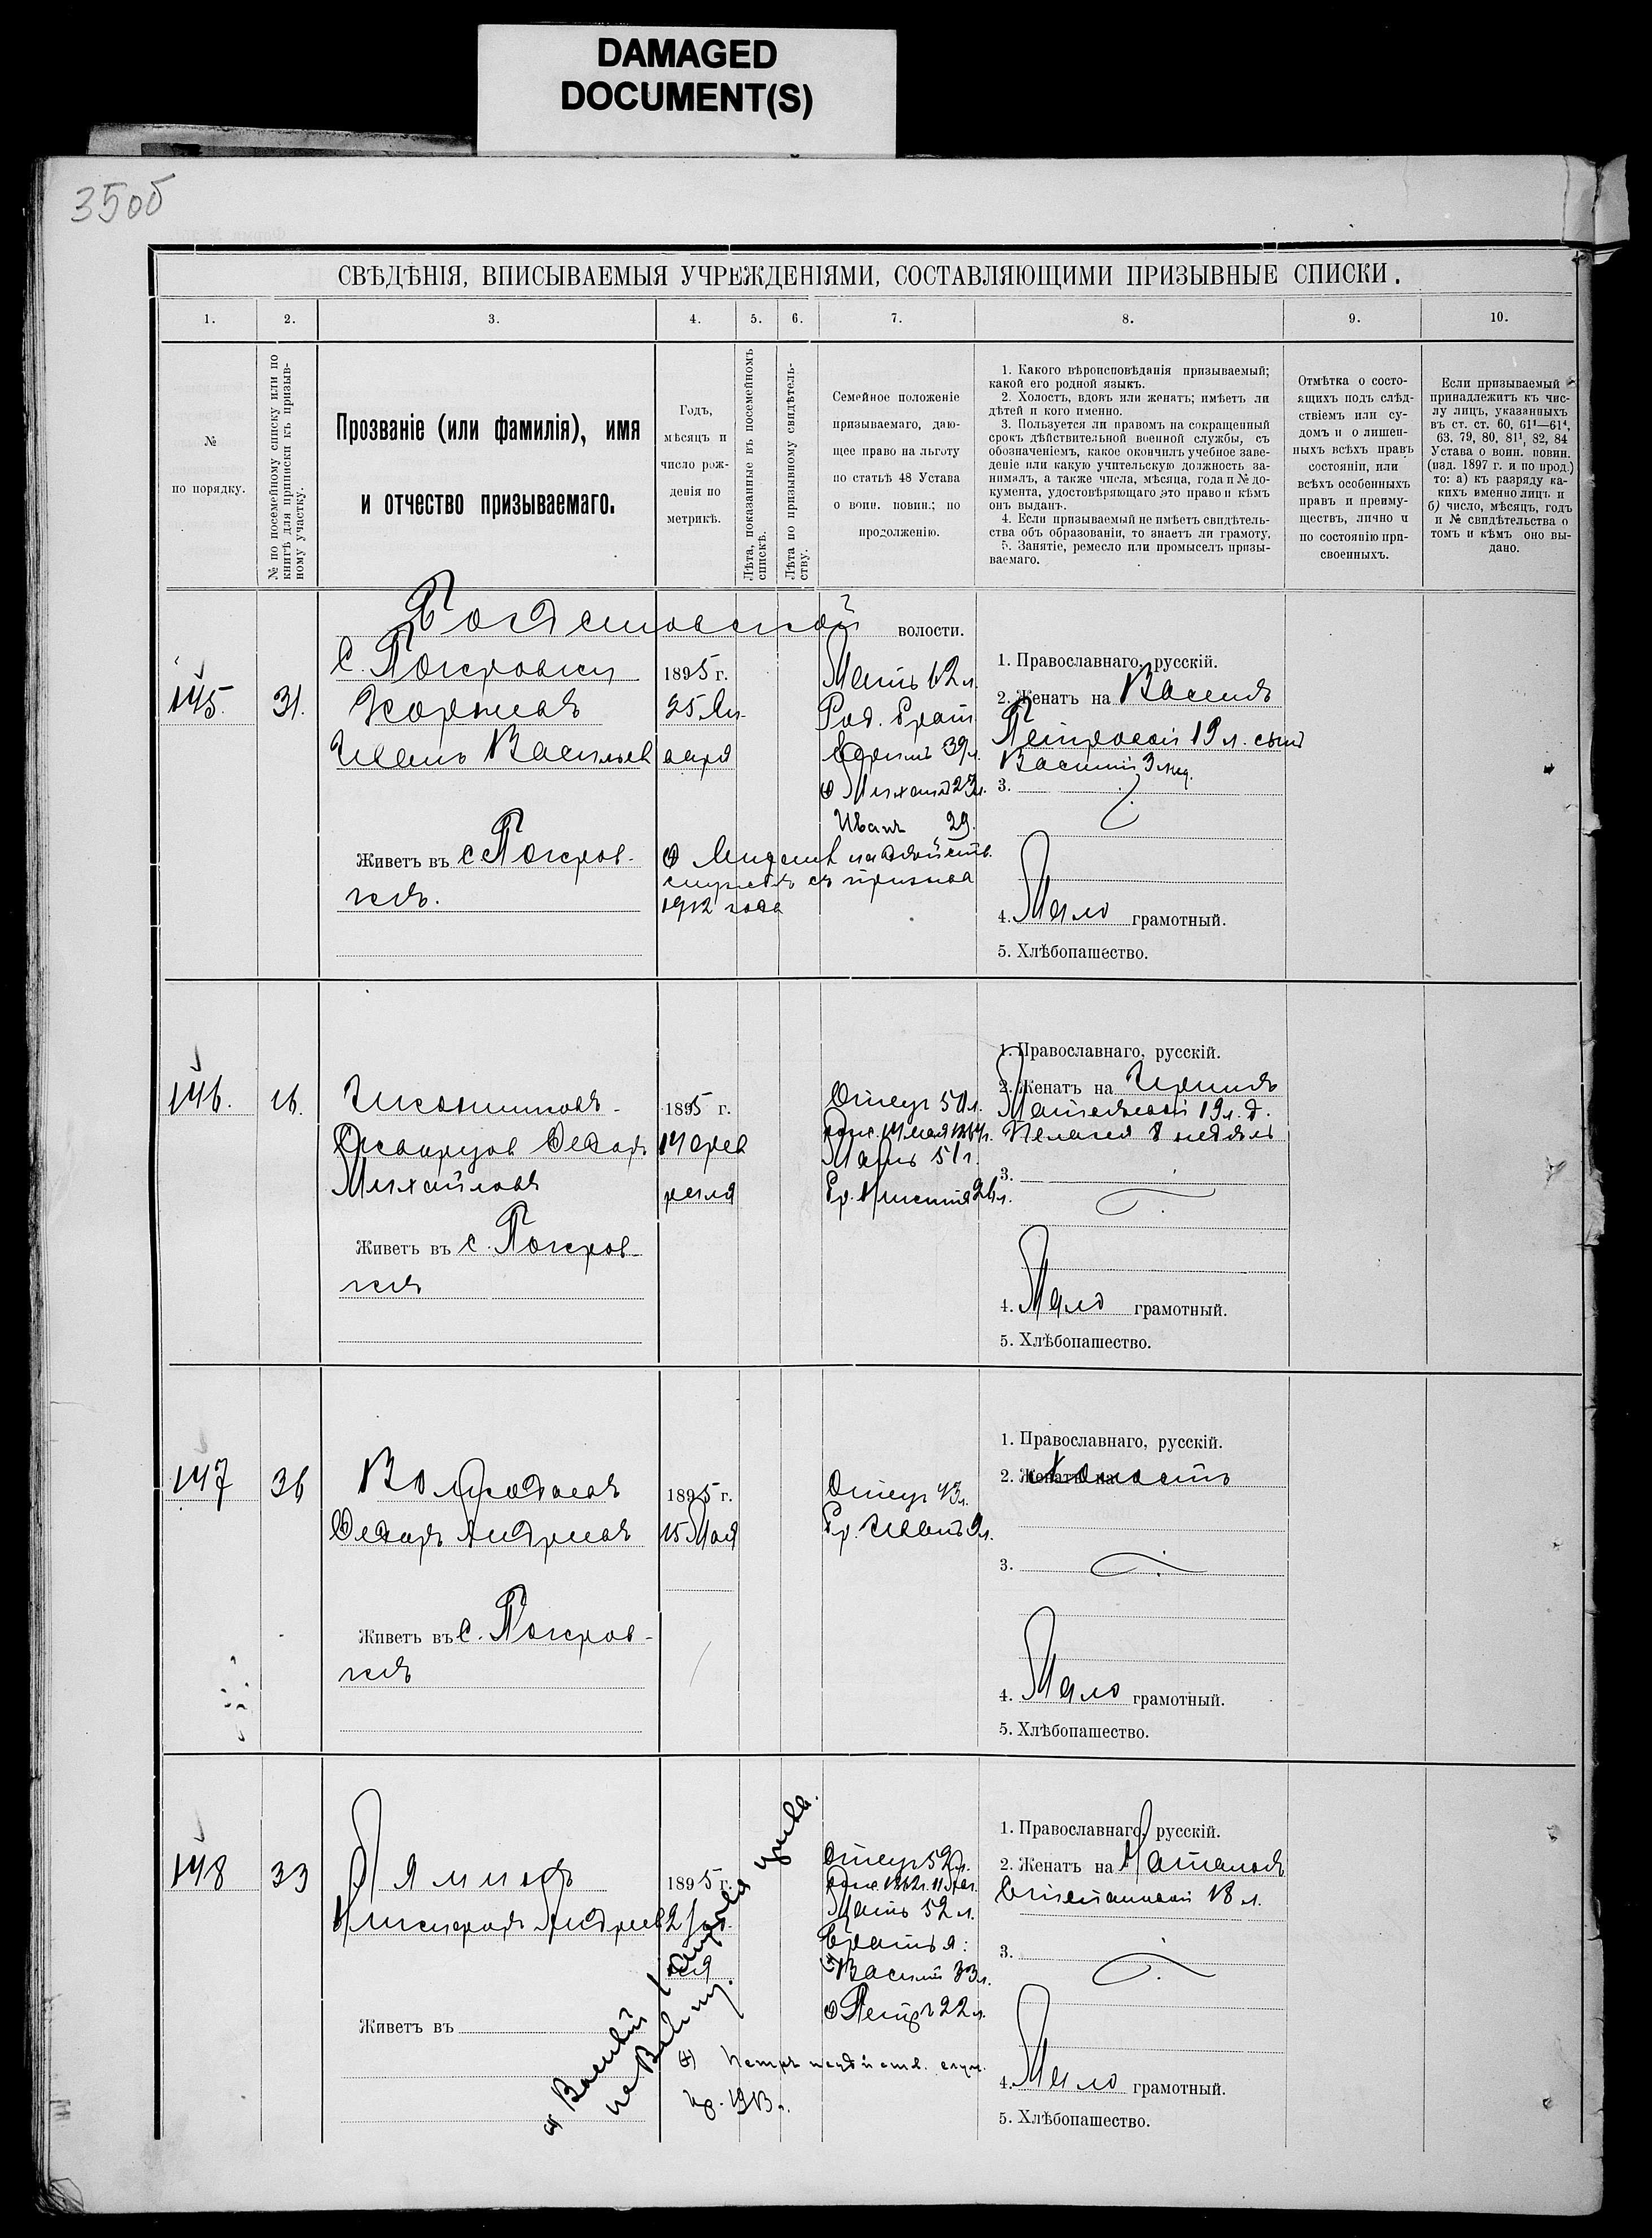 DAMAGED
DOCUMENT(S)
35об
СВѢДѢНІЯ, ВПИСЫВАЕМЫЯ УЧРЕЖДЕНІЯМИ, СОСТАВЛЯЮЩИМИ ПРИЗЫВНЫЕ СПИСКИ.
1. 2. 3. 4. 5. 6. 7. 8. 9. 10.
№
по порядку.
№ по посемейному списку или по
книгѣ для приписки къ призыв-
ному участку.
Прозваніе (или фамилія), имя
и отчество призываемаго.
Годъ,
мѣсяцъ и
число рож-
денія по
метрикѣ.
Лѣта, показанные въ посемейномъ
спискѣ.
Лѣта по призывному свидѣтель-
ству.
Семейное положеніе
призываемаго, даю-
щее право на льготу
по статьѣ 48 Устава
о воин. повин.; по
продолженію.
1. Какого вѣроисповѣданія призываемый;
какой его родной языкъ.
2. Холостъ, вдовъ или женатъ; имѣетъ ли
дѣтей и кого именно.
3. Пользуется ли правомъ на сокращенный
срокъ дѣйствительной военной службы, съ
обозначеніемъ, какое окончилъ учебное заве-
деніе или какую учительскую должность за-
нималъ, а также числа, мѣсяца, года и № до-
кумента, удостовѣряющаго это право и кѣмъ
онъ выданъ.
4. Если призываемый не имѣетъ свидѣтель-
ства объ образованіи, то знаетъ ли грамоту.
5. Занятіе, ремесло или промыселъ призы-
ваемаго.
Отмѣтка о состо-
ящихъ подъ слѣд-
ствіемъ или су-
домъ и о лишен-
ныхъ всѣхъ правъ
состоянія, или
всѣхъ особенныхъ
правъ и преиму-
ществъ, лично и
по состоянію при-
своенныхъ.
Если призываемый
принадлежитъ къ чис-
лу лицъ, указанныхъ
въ ст. ст. 60, 61¹—61⁴,
63, 79, 80, 81¹, 82, 84
Устава о воин. повин.
(изд. 1897 г. и по прод.)
то: а) къ разряду ка-
кихъ именно лицъ и
б) число, мѣсяцъ, годъ
и № свидѣтельства о
томъ и кѣмъ оно вы-
дано.
волости.
С. Покровки
145. 31.
Иванъ Васильев
1895 г.
25 Ян-
варя
Мать 62 л.
Род. брат.
Ефимъ 39 л.
Михаил 23 л.
Иванъ 29.
Живетъ въ с Покров-
кѣ.
на дѣйств.
службѣ съ призыва
1912 года
1. Православнаго, русскій.
2. Женатъ на
Петровой 19 л. сынъ
Василій 3 мѣс.
3.
4. Мало грамотный.
5. Хлѣбопашество.
146. 16.
Федоръ
Михайловъ
1895 г.
14 фев
раля
Отецъ
Мать 51 г.
Живетъ въ с. Покров-
кѣ
1. Православнаго, русскій.
2. Женатъ на Иринѣ
Матвѣевой 19 л. д.
Пелагея 8 недѣль
3.
4. Мало грамотный.
5. Хлѣбопашество.
147 36
Федоръ Андреевъ
1895 г.
15 Мая
Отецъ 43 л.
Бр. Иванъ 9 л.
Живетъ въ с. Покров-
кѣ
1. Православнаго, русскій.
2. Женатъ на Холостъ
3.
4. Мало грамотный.
5. Хлѣбопашество.
148 33
Ляминъ
Андреев
1895 г.
Отецъ 52 л.
Мать 52 л.
братья:
Василій 33 л.
Петръ 22 л.
Живетъ въ
Петръ на дѣйств. служ.
пр. 1913 г.
1. Православнаго, русскій.
2. Женатъ на Натальѣ
Степановой 18 л.
3.
4. Мало грамотный.
5. Хлѣбопашество.